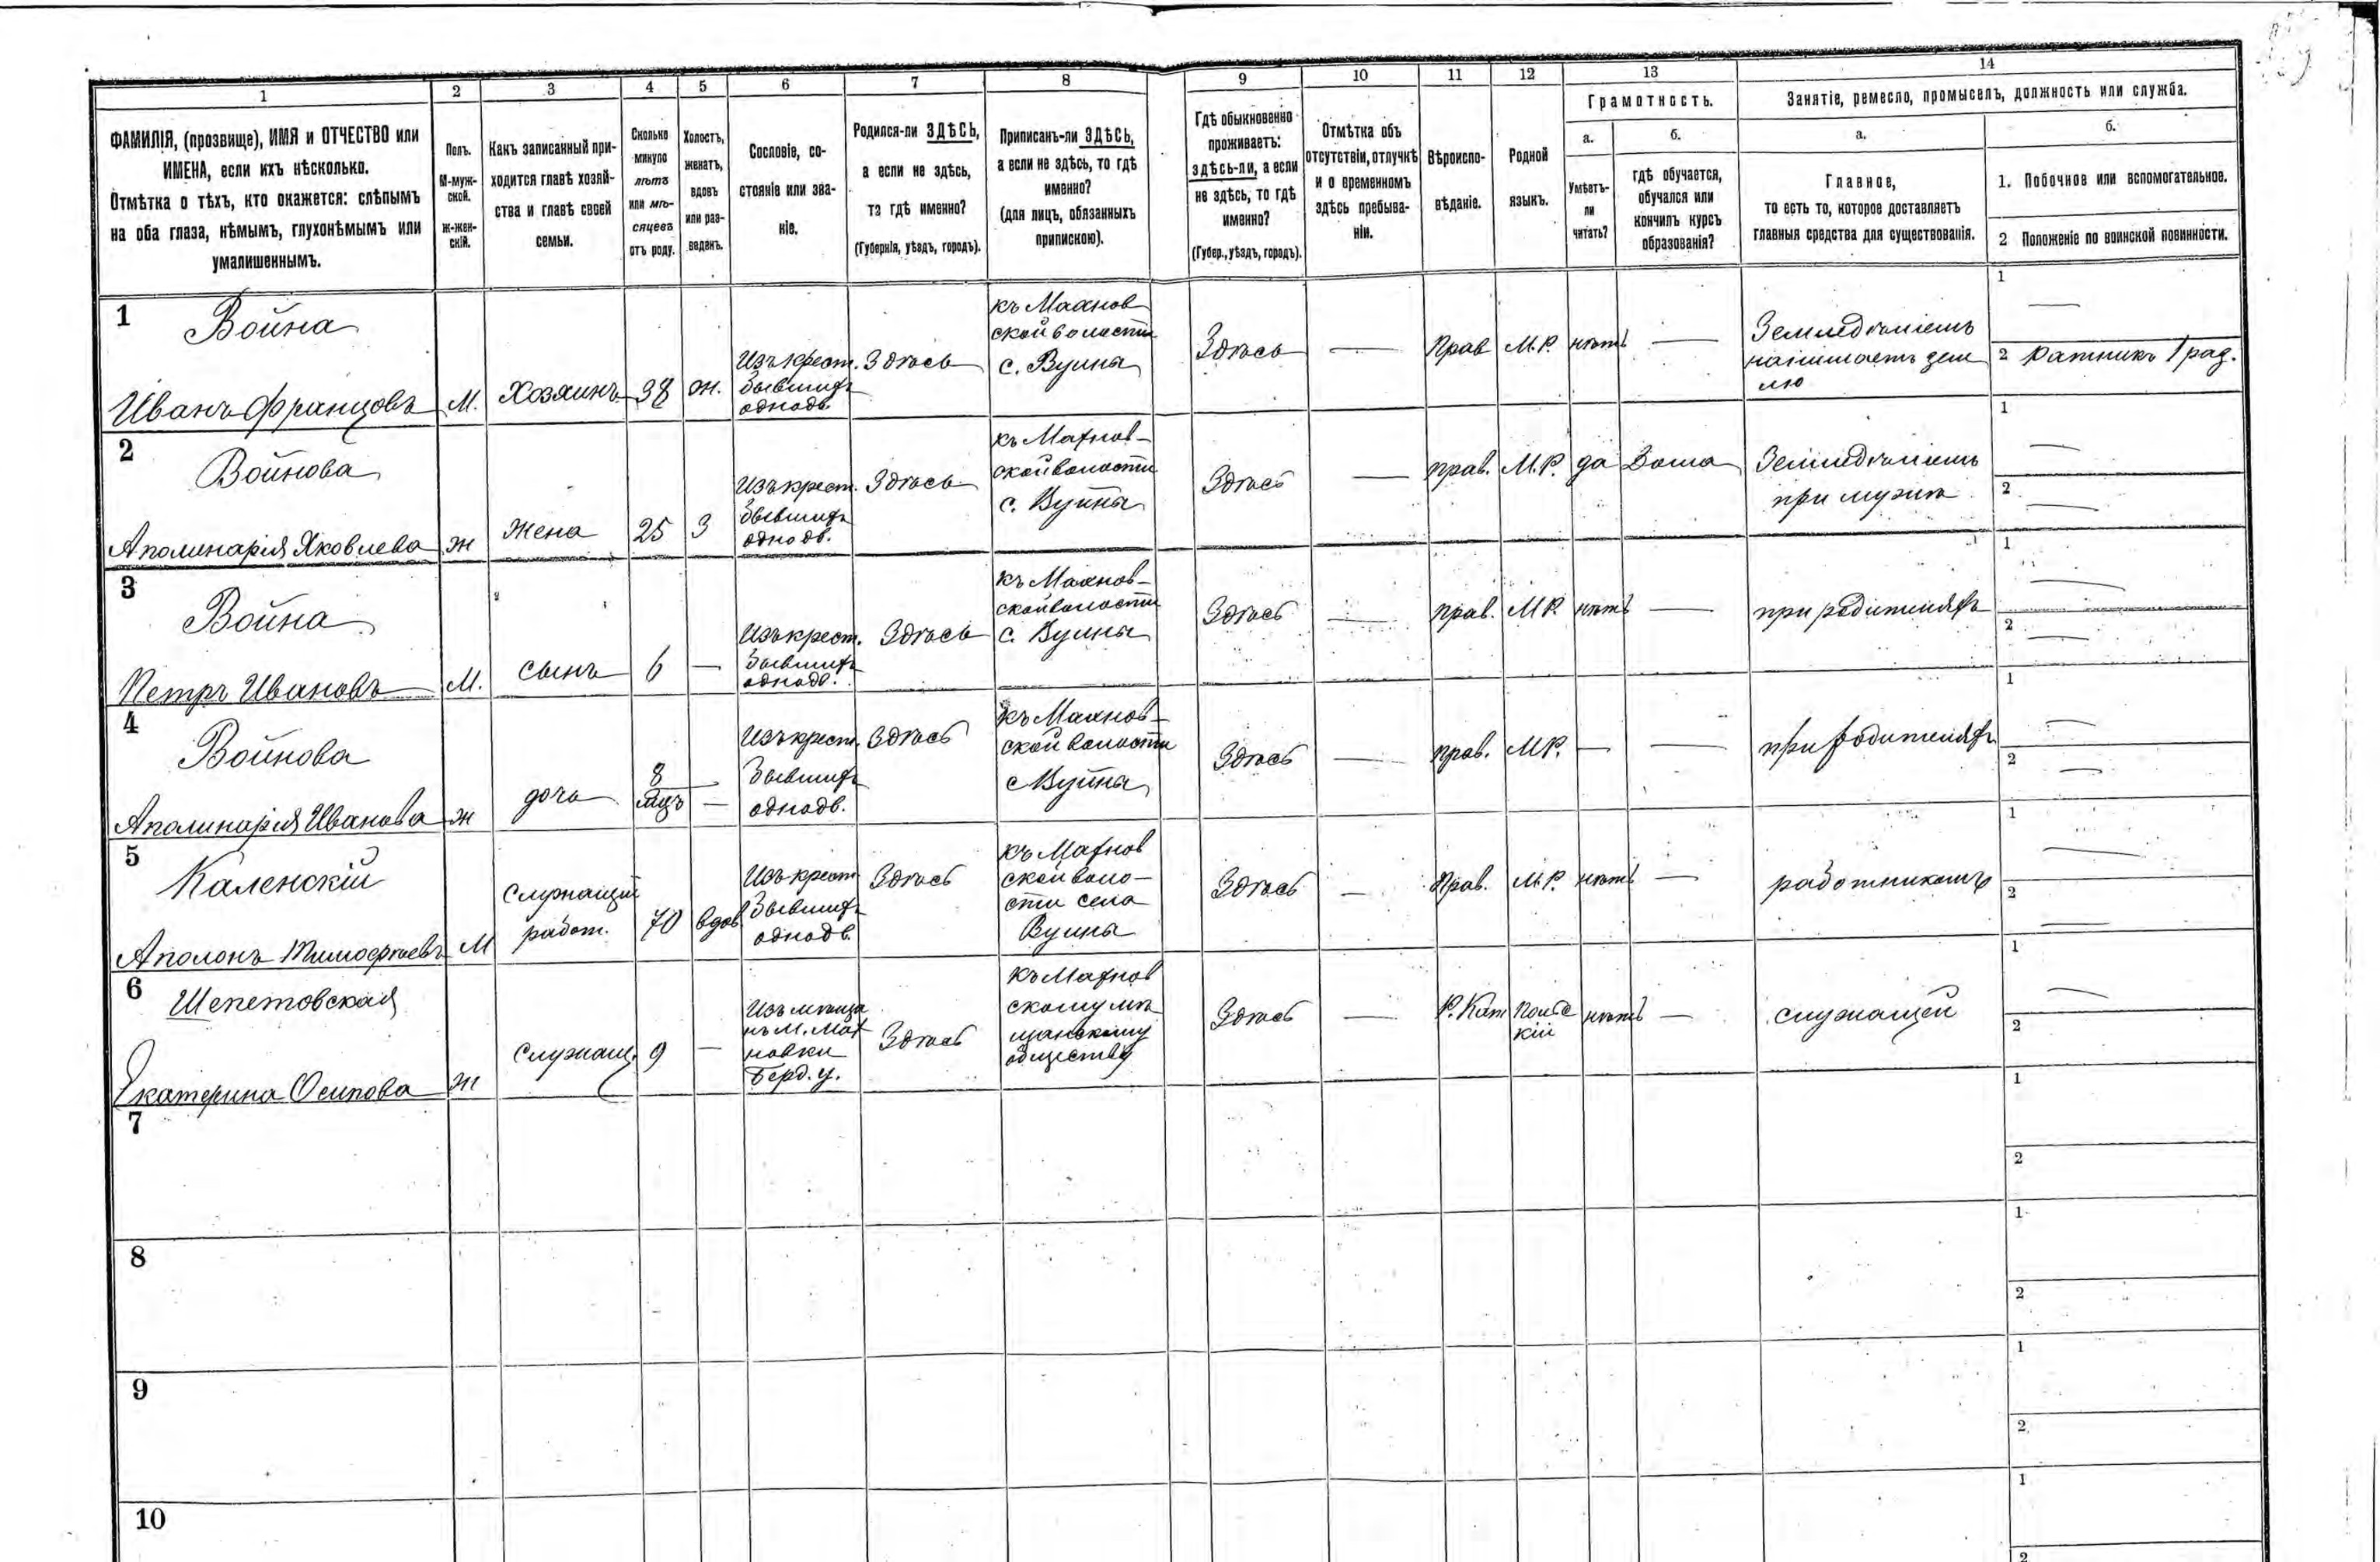 1 2 3 4 5 6 7 8 9 10 11 12 13 14
ФАМИЛІЯ, (прозвище), ИМЯ и ОТЧЕСТВО или
ИМЕНА, если ихъ нѣсколько.
Отмѣтка о тѣхъ, кто окажется: слѣпымъ
на оба глаза, нѣмымъ, глухонѣмымъ или
умалишеннымъ.
Полъ.
М-муж-
ской.
ж-жен-
скій.
Какъ записанный при-
ходится главѣ хозяй-
ства и главѣ своей
семьи.
Сколько
минуло
лѣтъ
или мѣ-
сяцевъ
отъ роду.
Холостъ,
женатъ,
вдовъ
или раз-
веденъ.
Сословіе, со-
стояніе или зва-
ніе.
Родился-ли ЗДѢСЬ,
а если не здѣсь,
то гдѣ именно?
(Губернія, уѣздъ, городъ).
Приписанъ-ли ЗДѢСЬ,
а если не здѣсь, то гдѣ
именно?
(для лицъ, обязанныхъ
припискою).
Гдѣ обыкновенно
проживаетъ:
здѣсь-ли, а если
не здѣсь, то гдѣ
именно?
(Губер., уѣздъ, городъ).
Отмѣтка объ
отсутствіи, отлучкѣ
и о временномъ
здѣсь пребыва-
ніи.
Вѣроиспо-
вѣданіе.
Родной
языкъ.
Грамотность.
а.
Умѣетъ-
ли
читать?
б.
гдѣ обучается,
обучался или
кончилъ курсъ
образованія?
Занятіе, ремесло, промыселъ, должность или служба.
а.
Главное,
то есть то, которое доставляетъ
главныя средства для существованія.
б.
1. Побочное или вспомогательное.
2 Положеніе по воинской повинности.
1
Война
Иванъ Францовъ
М.
Хозяинъ
38
ж.
Изъ крест.
бывшихъ
однодв.
Здѣсь
къ Махнов
ской волости
с. Вуйна
Здѣсь
—
Прав
М.Р.
нѣтъ
—
Земледѣліемъ
нанимаетъ зем
лю
1 —
2 Ратникъ 1 раз.
2
Войнова
Аполинарія Яковлева
ж
жена
25
З
Изъ крест.
бывшихъ
однодв.
Здѣсь
къ Махнов-
ской волости
с. Вуйна
Здѣсь
—
прав.
М.Р.
да
Дома
Земледѣліемъ
при мужѣ
1 —
2 —
3
Война
Петръ Ивановъ
М.
сынъ
6
—
Изъ крест.
бывшихъ
однодв.
Здѣсь
къ Махнов-
ской волости
с. Вуйна
Здѣсь
—
прав.
М.Р.
нѣтъ
—
при родителяхъ
1 —
2 —
4
Войнова
Аполинарія Иванова
ж
дочь
8
мцъ
—
Изъ крест.
бывшихъ
однодв.
Здѣсь
къ Махнов-
ской волости
с Вуйна
Здѣсь
—
прав.
М.Р.
—
—
при родителяхъ
1 —
2 —
5
Каленскій
Аполонъ Тимофѣевъ
М
Служащій
работ.
70
вдов
Изъ крест
бывшихъ
однодв.
Здѣсь
къ Махнов
ской воло-
сти села
Вуйны
Здѣсь
—
Прав.
М.Р.
нѣтъ
—
работникомъ
1 —
2 —
6
Шепетовская
Екатерина Осипова
ж
Служащ.
9
—
Изъ мѣща
нъ м. Мах
новки
Берд. у.
Здѣсь
къ Махнов
скому мѣ
щанскому
обществу
Здѣсь
—
Р. Кат
Польс
кій
нѣтъ
—
служащей
1 —
2
7
1
2
8
1
2
9
1
2
10
1
2